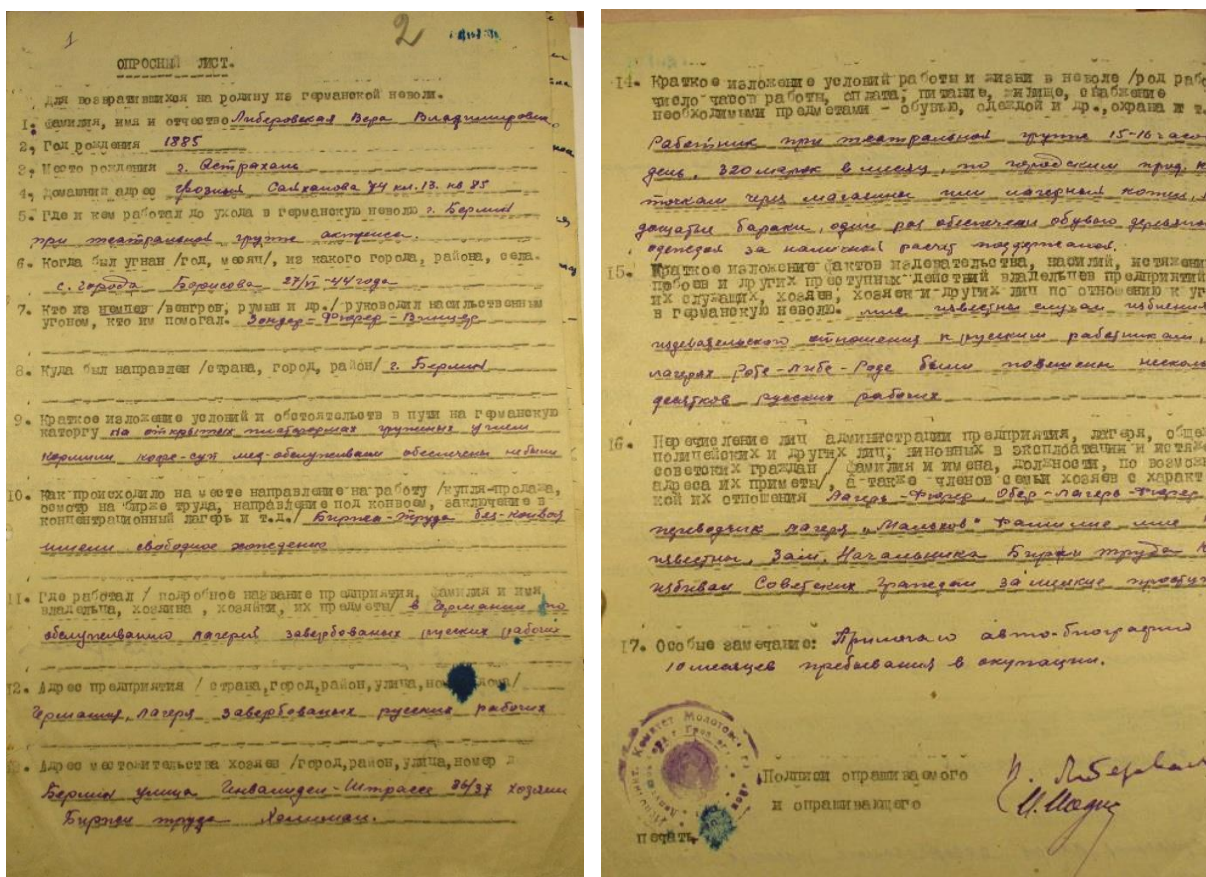 1
2
ОПРОСНЫЙ ЛИСТ.
Для возвратившихся на родину из германской неволи.
1. Фамилия, имя и отчество Либеровская Вера Владимировна
2. Год рождения 1885
3. Место рождения г. Астрахань
4. Домашний адрес Грозный 74 кл. 13. кв 85
5. Где и кем работал до ухода в германскую неволю г. Берлин
при театральной группе актриса.
6. Когда был угнан /год, месяц/, из какого города, района, села.
с. города Борисова 27/VI-44 года
7. Кто из немцев /венгров, румын и др./ руководил насильственным
угоном, кто им помогал. Зондер-Фюрер-
8. Куда был направлен /страна, город, район/ г. Берлин
9. Краткое изложение условий и обстоятельств в пути на германскую
каторгу на открытых платформах груженых углем
кормили кофе-суп мед-обслуживаем обеспечены небыли
10. Как происходило на месте направление на работу /купля-продажа,
осмотр на бирже труда, направление под конвоем, заключение в
концентрационный лагерь и т.д./ Биржа-труда без-конвоя
имели свободное хождение
11. Где работал / подробное название предприятия, фамилия и имя
владельца, хозяина, хозяйки, их предметы/ в Германии по
обслуживанию лагерей завербованых русских рабочих
12. Адрес предприятия / страна, город, район, улица, дома/
Германия, лагеря завербованых русских рабочих
Адрес местожительства хозяев /город, район, улица, номер д
Берлин улица Инвалиден-Штрассе 36/37 хозяин
Биржи труда
14. Краткое изложение условий работы и жизни в неволе /род рабо
число часов работы, оплата, питание, жилище, снабжение
необходимыми предметами - обувью, одеждой и др., охрана и т.
Работник при театральной группе 15-16 часо
день, 320 марок в месяц, по городским прод. к
точкам через магазины или лагерный котел,
дощатые бараки, один раз обеспечен обувью деревяно
одеждой за наличный расчет поддержаной.
15. Краткое изложение фактов издевательства, насилий, истязани
побоев и других преступных действий владельцев предприятий
их служащих, хозяев, хозяек и других лиц по отношению к уг
в германскую неволю. мне известны случаи избиения
издевательского отношения к русским работникам,
лагерях были повешены несколь
десятков русских рабочих
16. Перечисление лиц администрации предприятия, лагеря, обще
полицейских и других лиц, виновных в эксплоатации и истяз
советских граждан / фамилия и имена, должности, по возмож
адреса их приметы/, а также членов семьи хозяев с характ
кой их отношения Лагерь-Фюрер, Обер-лагерь-Фюрер
переводчик лагеря „Мальков" Фамилие мне
известны, Зам. Начальника Биржи труда
избивал Советских граждан за мелкие проступ
17. Особые замечание: Прилагаю авто-биографию
10 месяцев пребывания в окупации.
Подписи опрашиваемого
и опрашивающего
печать